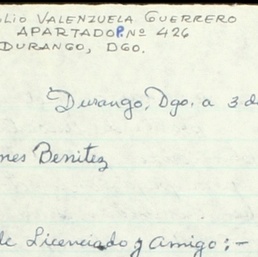 LIO VALENZUELA GUERRERO
APARTADO P. Nº 426
DURANGO, DGO.
Durango, Dgo. a 3 d
nes Benitez
de Licenciado y Amigo:-